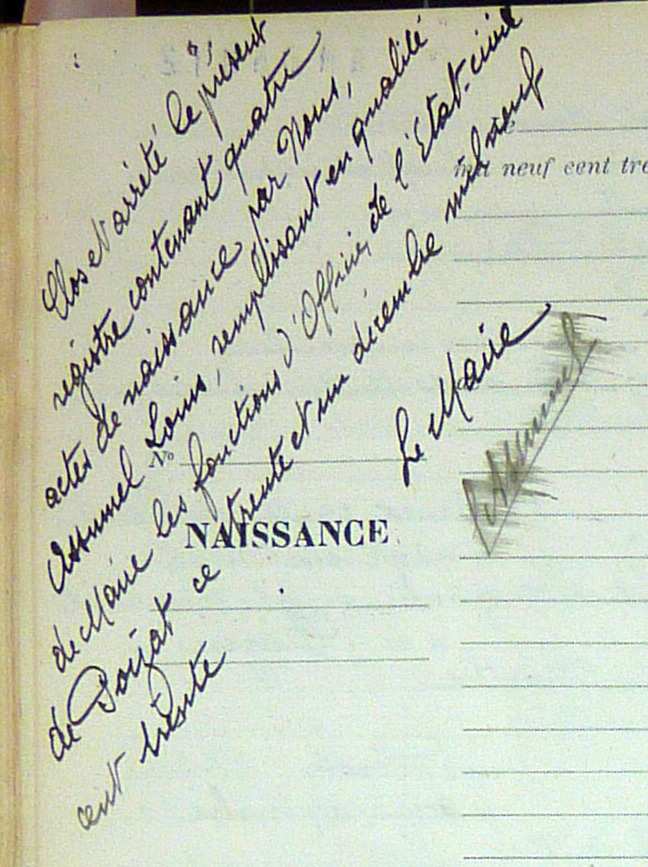 Clos et arrêté le présent
registre contenant quatre
actes de naissance par Nous,
Assumel Louis, remplissant en qualité
de Maire les fonctions d'Officier de l'Etat-civil
de Poizat ce trente et un décembre mil neuf
cent trente
Le Maire
Assumel
mil neuf cent tre
No
NAISSANCE